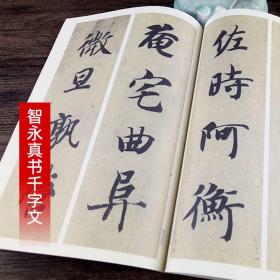 佐時阿衡
奄宅曲阜
微旦孰營
智永真书千字文